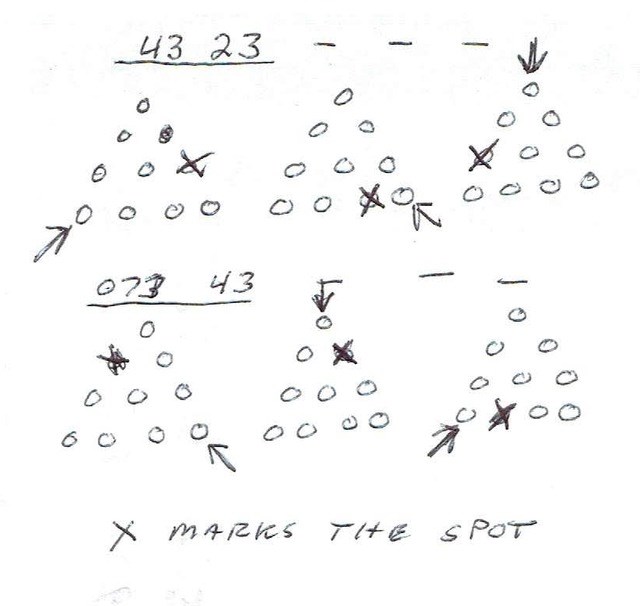 43 23 - - -
073 43 - - -
X MARKS THE SPOT